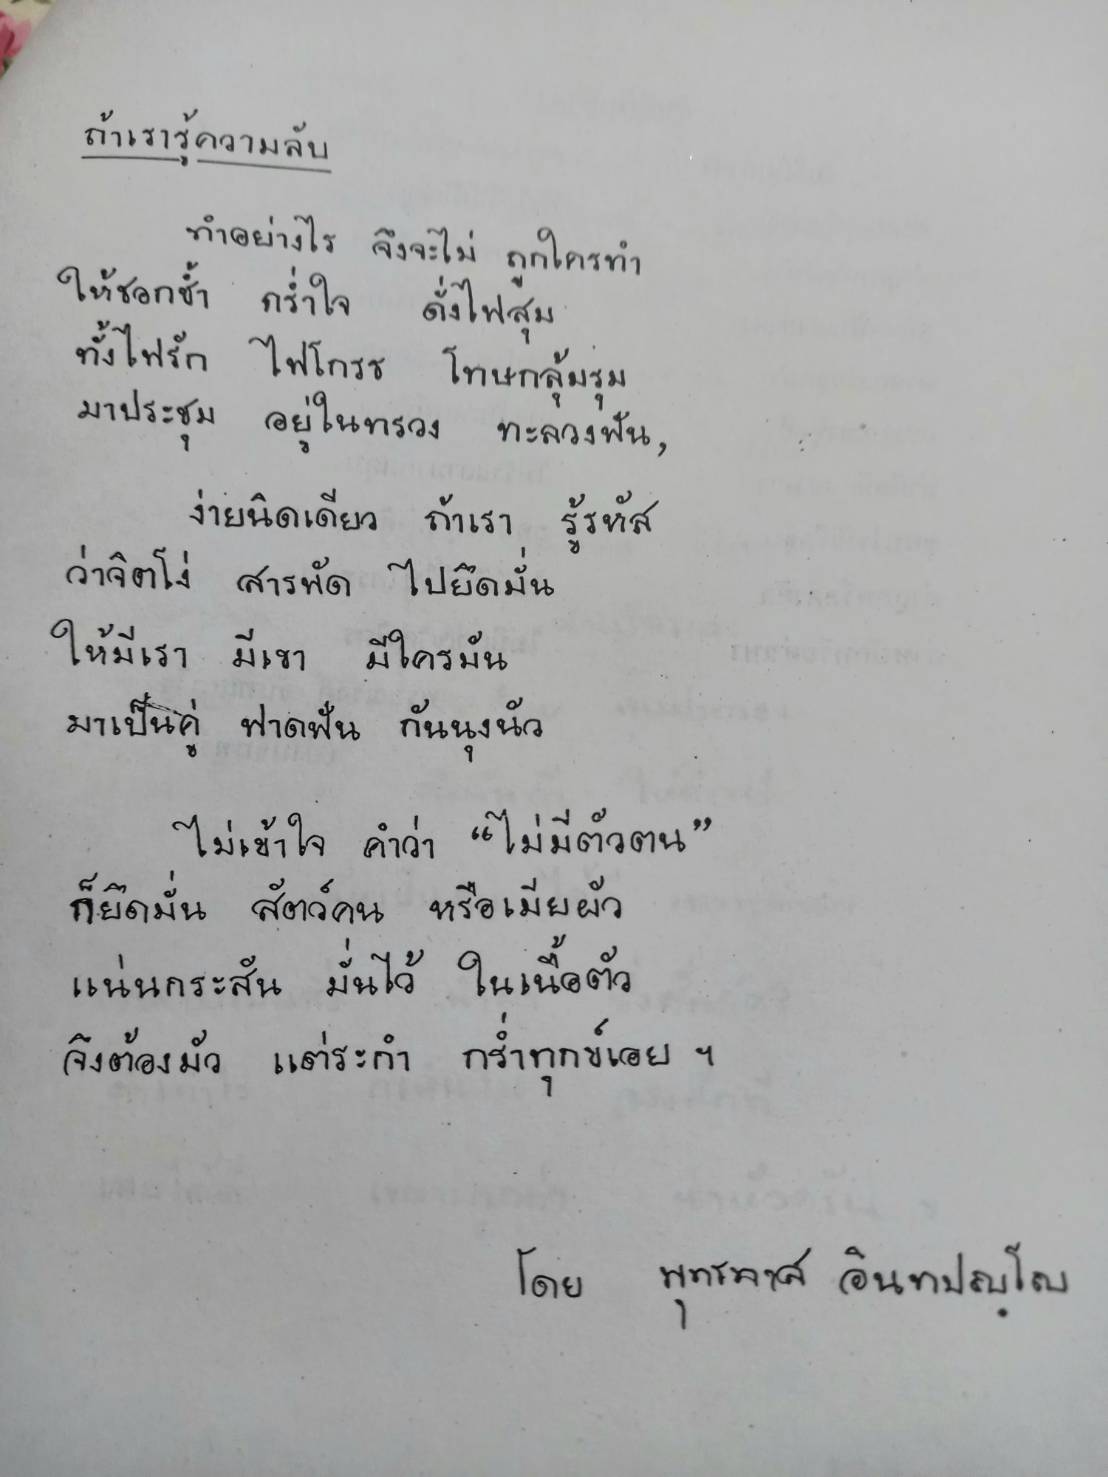 ถ้าเรารู้ความลับ
ทำอย่างไร จึงจะไม่ ถูกใครทำ
ให้ชอกช้ำ กร่ำใจ ดั่งไฟสุม
ทั้งไฟรัก ไฟโกรธ โทษกลุ้มรุม
มาประชุม อยู่ในทรวง ทะลวงฟัน,
ง่ายนิดเดียว ถ้าเรา รู้รหัส
ว่าจิตโง่ สารพัด ไปยึดมั่น
ให้มีเรา มีเขา มีใครมัน
มาเป็นคู่ ฟาดฟัน กันนุงนัว
ไม่เข้าใจ คำว่า “ไม่มีตัวตน”
ก็ยึดมั่น สัตว์คน หรือเมียผัว
แน่นกระสัน มั่นไว้ ในเนื้อตัว
จึงต้องมัว แต่ระกำ กร่ำทุกข์เอย ฯ
โดย พุทธทาส อินทปญฺโญ